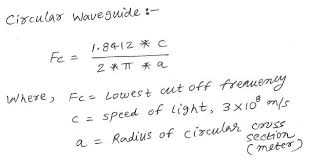 Circular Waveguide :-
Fc = 1.8412 * c
2 * π * a
Where, Fc = Lowest cut off frequency
c = speed of light, 3 x 10⁸ m/s
a = Radius of circular cross
section
(meter)